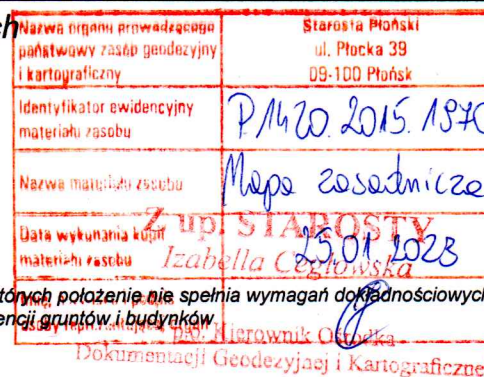 ch
Nazwa organu prowadzącego
państwowy zasób geodezyjny
i kartograficzny
Starosta Płoński
ul. Płocka 39
09-100 Płońsk
Identyfikator ewidencyjny
materiału zasobu
P.1420.2015.1970
Nazwa materiału zasobu
Mapa zasadnicza
Data wykonania kopii
materiału zasobu
25.01.2023
Z up. STAROSTY
Izabella Cegłowska
których położenie nie spełnia wymagań dokładnościowych
encji gruntów i budynków
p.o. Kierownik Ośrodka
Dokumentacji Geodezyjnej i Kartograficzne